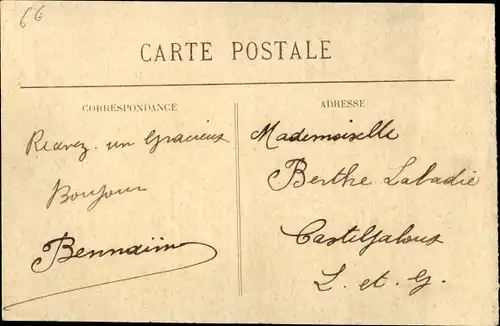 66
CARTE POSTALE
CORRESPONDANCE
Recevez un Gracieux
Bonjour
Bennaïm
ADRESSE
Mademoiselle
Berthe Labadie
Casteljaloux
L. et. G.